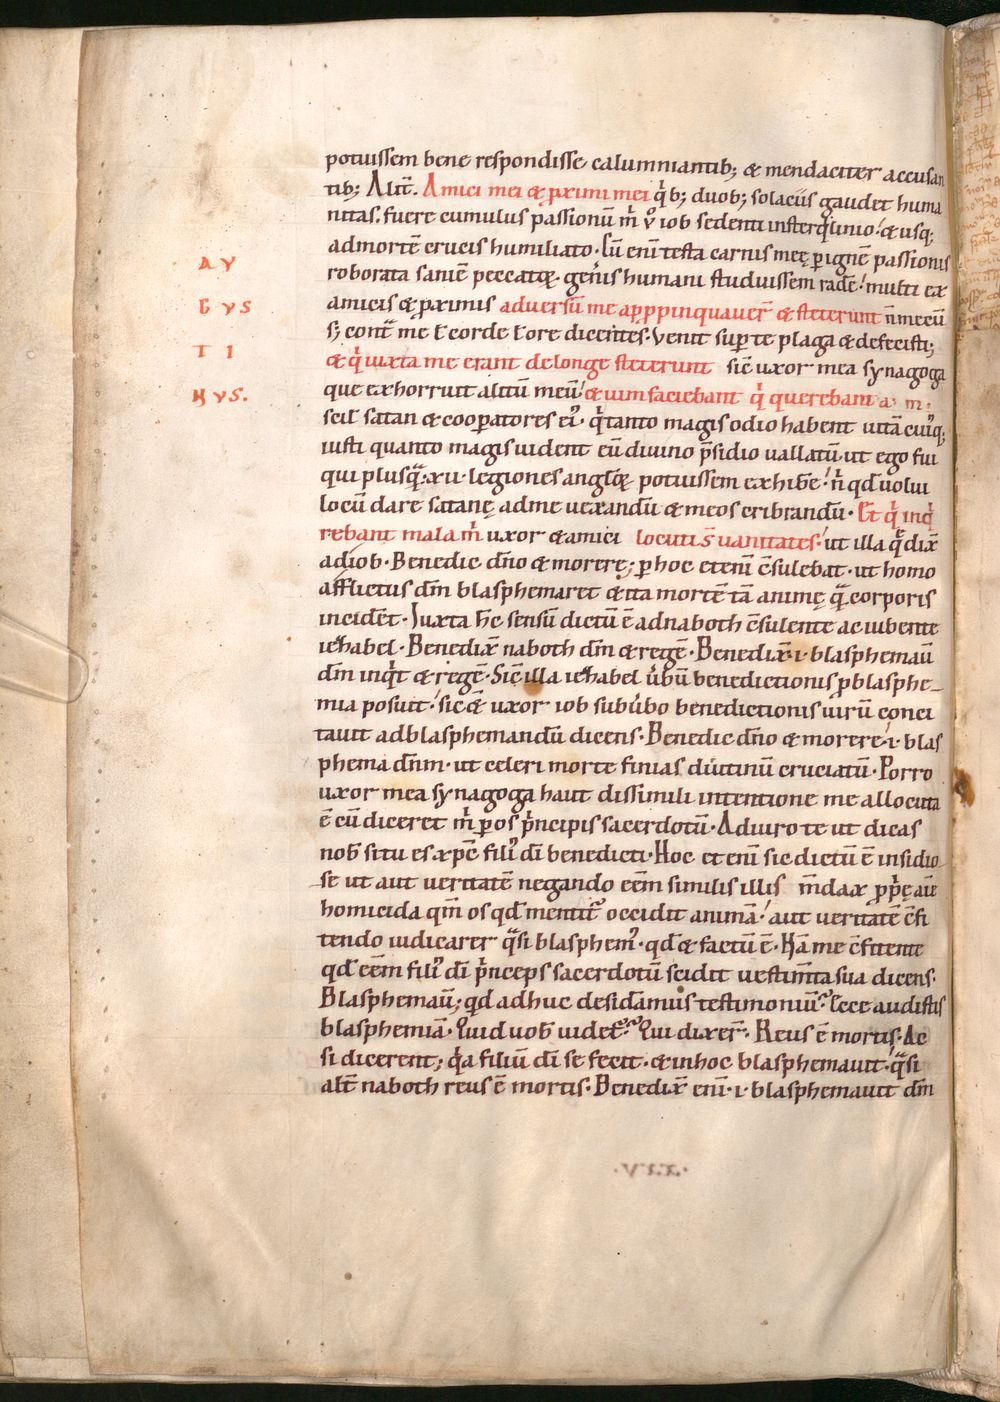 potuissem bene respondisse calumniantib; & mendaciter accusan
tib; Alit̄. Amici mei & p̱ximi mei qͥb; duob; solaciis gaudet huma
nitas. fuere cumulus passionū m̄ v̊ iob sedenti insterqͥlinio. & usq;
admortē crucis humiliato. Cū enī testa carnis meę ꝑ ignē passionis
AV
roborata saniē peccatoꝝ gen̄is humani studuissem radē. multi ex
GVS
amicis & p̱ximis adversū me apꝓpinquauer̄ & steterunt n̄ mecū
s; cont̄ me ł corde ł ore dicentes. Venit suꝑ te plaga & defecisti;
TI
& qͥ iuxta me erant delonge steterunt sic̄ uxor mea synagoga
NVS.
que exhorruit alitū meū. & uim faciebant qͥ querebant a. m.
scil̄ satan & cooꝑatores ei᾿. qͥ tanto magis odio habent uitā cui᾿q;
iusti quanto magis uident eū diuino p̄sidio uallatū. ut ego fui
qui plusqᷓ. xii. legiones angl̄oꝝ potuissem exhib̄e. n̄ qd̄ uolui
locū dare satanę adme uexandū & meos cribrandū. Et qͥ inqͥ
rebant mala m̄ uxor & amici locuti s̄ uanitates. ut illa qᷓ̄ dix̄
adiob. Benedic dn̄o & morere; ꝑ hoc etenī c̄sulebat. ut homo
afflictus dm̄ blasphemaret & ita mortē tā animę qᷓ corporis
incidēt. Iuxta hc̄ sensū dictū ē adnaboth c̄sulente ac iubente
iezhabel. Benedix̄ naboth dm̄ & regē. Benedix̄ .i. blasphemaū
dm̄ inqͥt & regē. Sic̄ illa iezhabel ūbū benedictionis p̱ blasphe-
mia posuit. sic & uxor iob sub ūbo benedictionis uirū conci
tauit adblasphemandū dicens. Benedic dn̄o & morere .i. blas
phema dn̄m. ut celeri morte finias diutinū cruciatū. Porro
uxor mea synagoga haut dissimili intentione me allocuta
ē cū diceret m̄ ꝑ os pͥncipis sacerdotū. Adiuro te ut dicas
nob̄ si tu es xp̄c fili᾿ dī benedicti. Hoc etenī sic dictū ē insidio
se ut aut ueritatē negando eēm similis illis m̄dax ꝓpͥę aīę
homicida qm̄ os qd̄ mentit᾿ occidit animā. aut ueritatē c̄fi
tendo iudicarer qᷓsi blasphem᾿. qd̄ & factū ē. Nā me c̄fitente
qd̄ eēm fili᾿ dī pͥnceps sacerdotū scidit uestim̄ta sua dicens.
Blasphemaū; qd̄ adhuc desidam̄us testimoniū. Ecce audistis
blasphemiā. Quid uob̄ uidet᾿. Qui dixer̄. Reus ē mortis. Ac
si dicerent; qͥa filiū dī se fecit. & inhoc blasphemauit. qᷓsi
alt̄ naboth reus ē mortis. Benedix̄ enī .i. blasphemauit dm̄
.xxv.